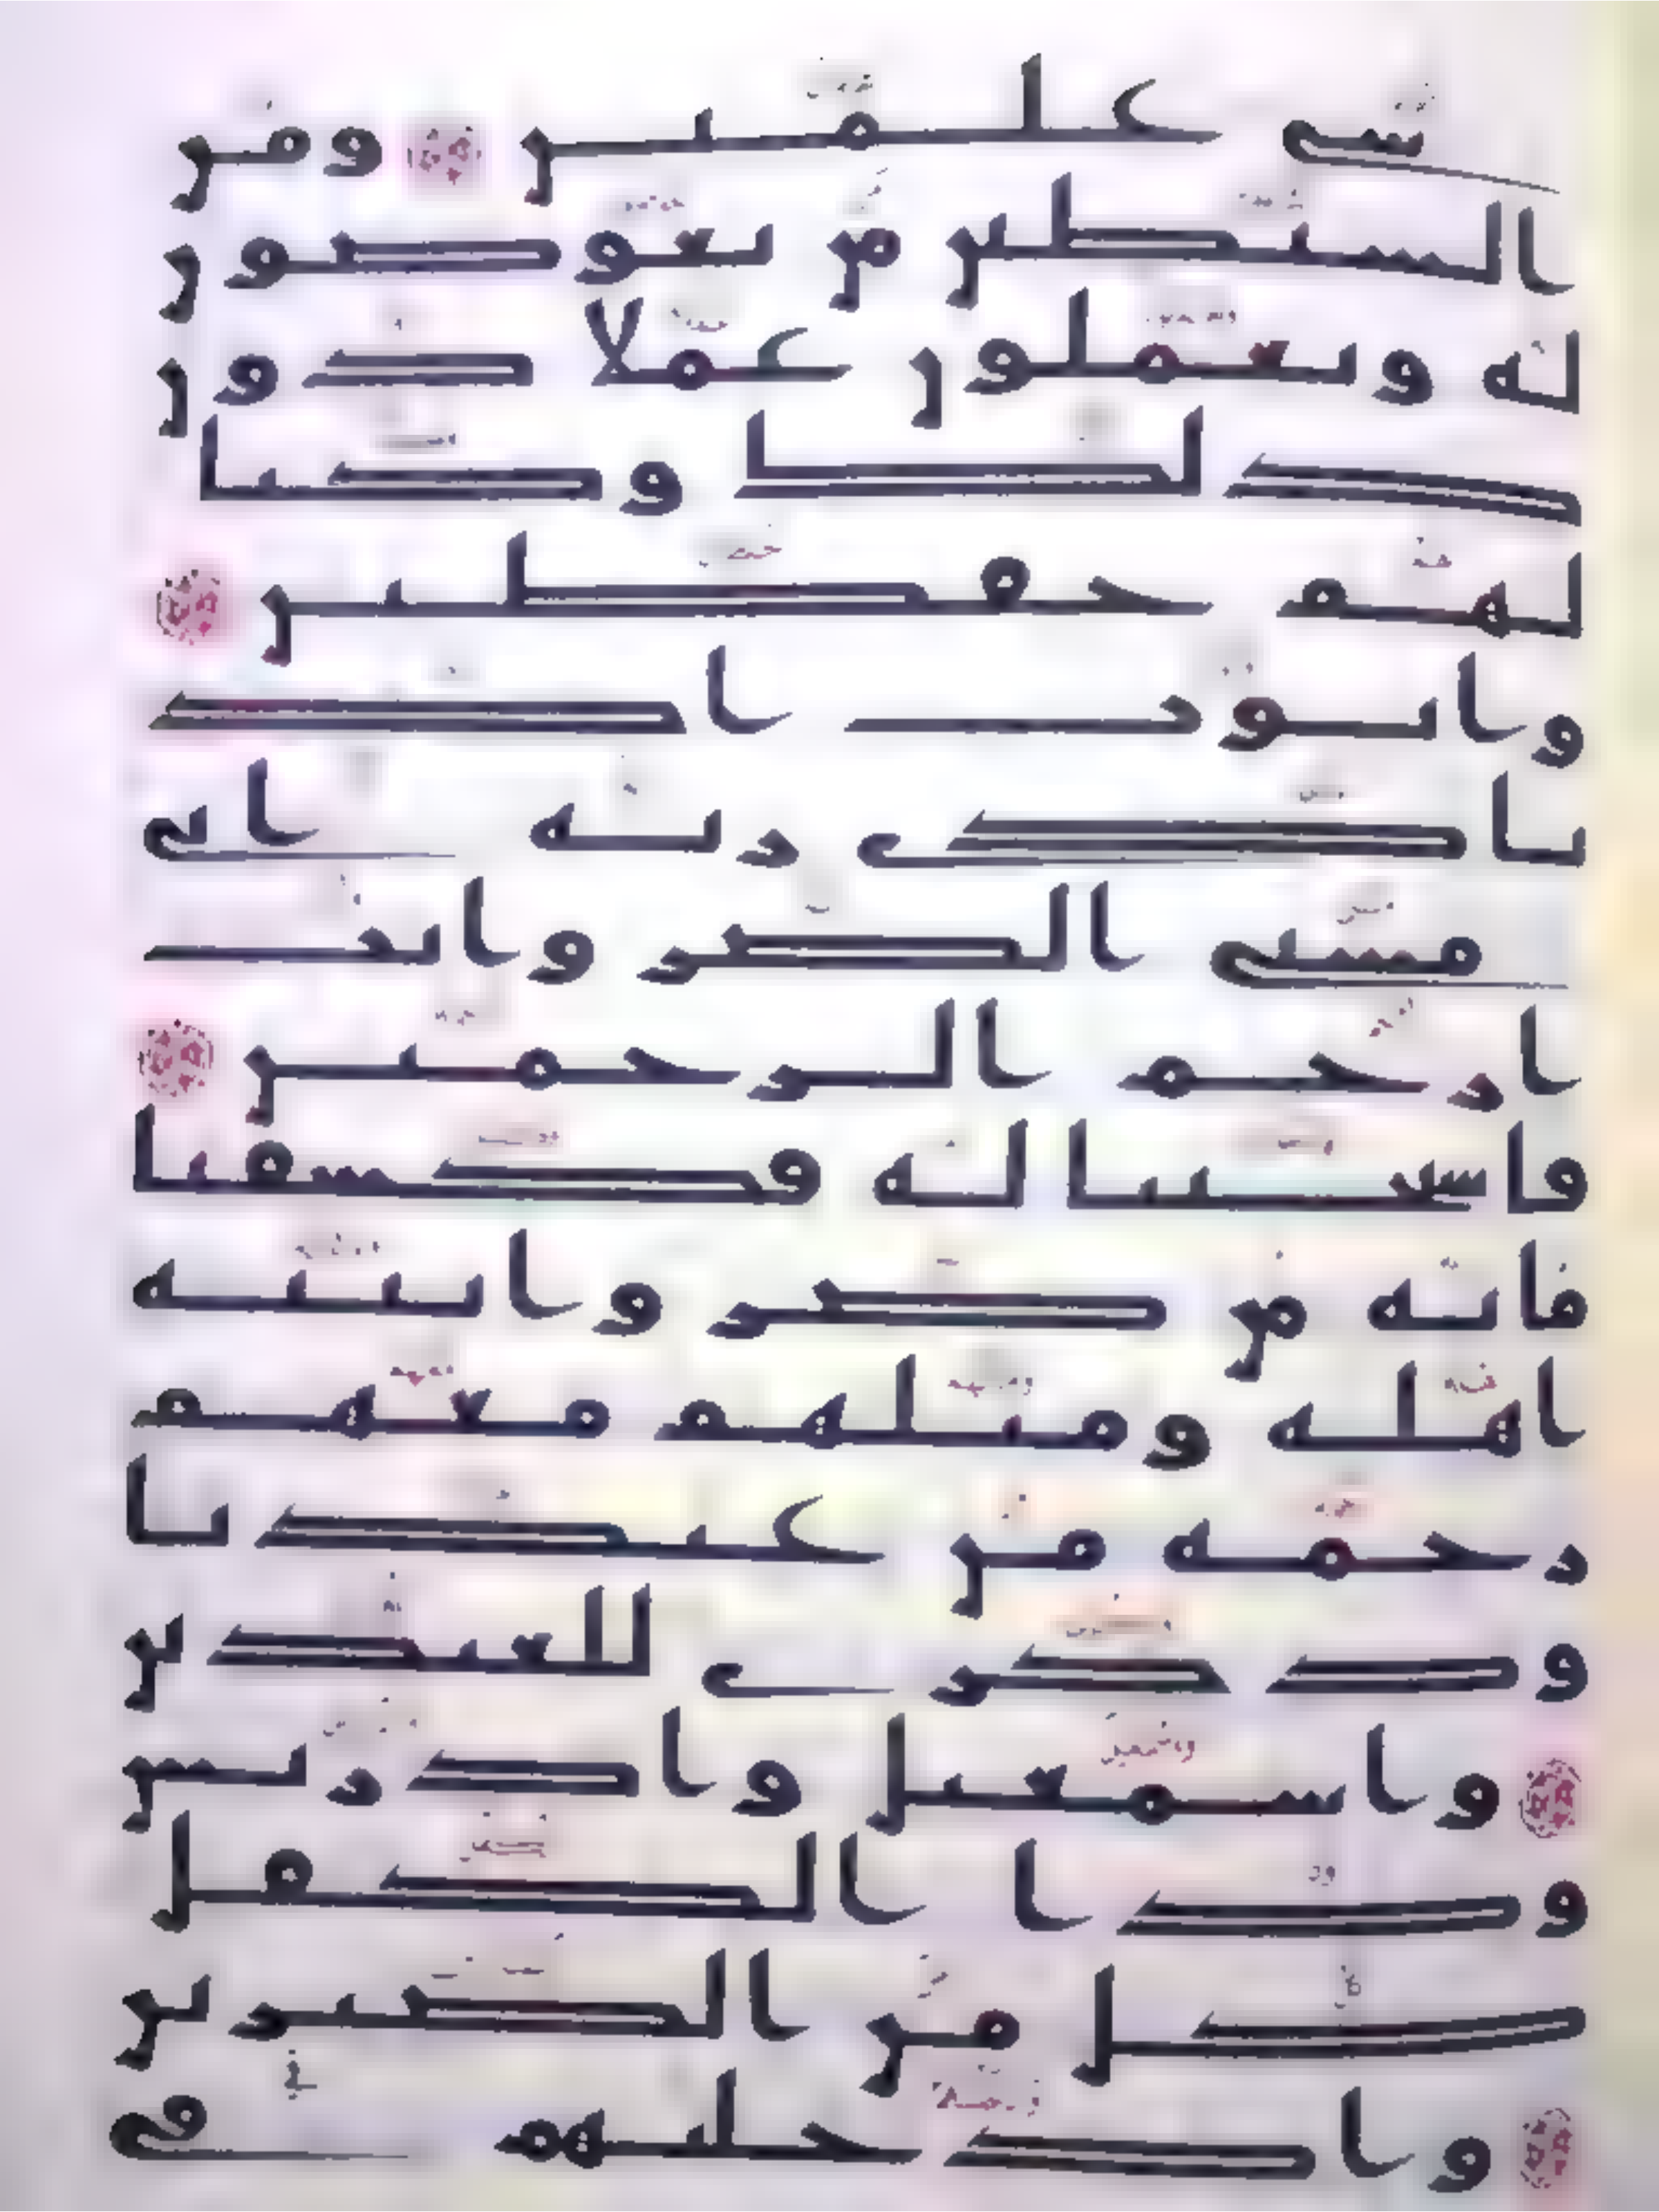 شى علمين ومن
الشيطين من يغوصون
له ويعملون عملا دون
ذلك وكنا
لهم حفظين
وايوب اذ
نادى ربه انى
مسنى الضر وانت
ارحم الرحمين
فاستجبنا له فكشفنا
ما به من ضر واتينه
اهله ومثلهم معهم
رحمة من عندنا
وذكرى للعبدين
واسمعيل وادريس
وذا الكفل
كل من الصبرين
وادخلنهم فى